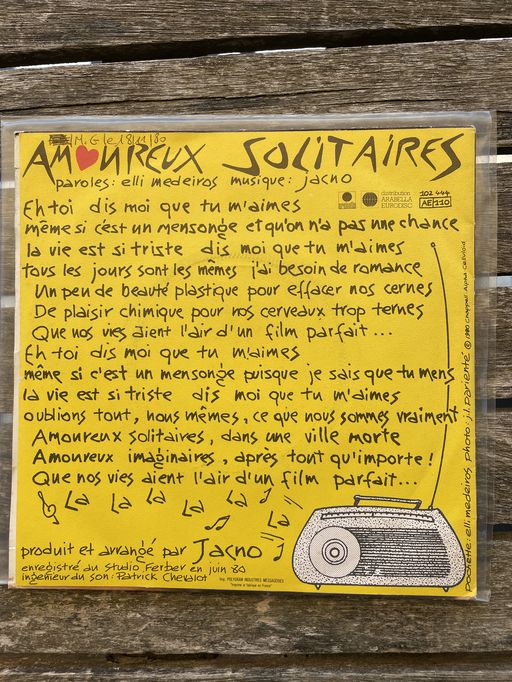 M.G le 18/11/80
AMOUREUX SOLITAIRES
paroles: elli medeiros musique: jacno
distribution
ARABELLA
EURODISC
102 444
AE 110
Eh toi dis moi que tu m'aimes
même si c'est un mensonge et qu'on n'a pas une chance
la vie est si triste dis moi que tu m'aimes
tous les jours sont les mêmes j'ai besoin de romance
Un peu de beauté plastique pour effacer nos cernes
De plaisir chimique pour nos cerveaux trop ternes
Que nos vies aient l'air d'un film parfait...
Eh toi dis moi que tu m'aimes
même si c'est un mensonge puisque je sais que tu mens
la vie est si triste dis moi que tu m'aimes
oublions tout, nous mêmes, ce que nous sommes vraiment
Amoureux solitaires, dans une ville morte
Amoureux imaginaires, après tout qu'importe!
Que nos vies aient l'air d'un film parfait...
La La La La La La
produit et arrangé par Jacno
enregistré au Studio Ferber en juin 80
ingenieur du son: Patrick Chevalot
Imp. POLYGRAM INDUSTRIES MESSAGERIES
"Imprimé & fabriqué en France"
pochette: elli medeiros photo: j.l. Parienté © 1980 Chappell Alpha Celluloid